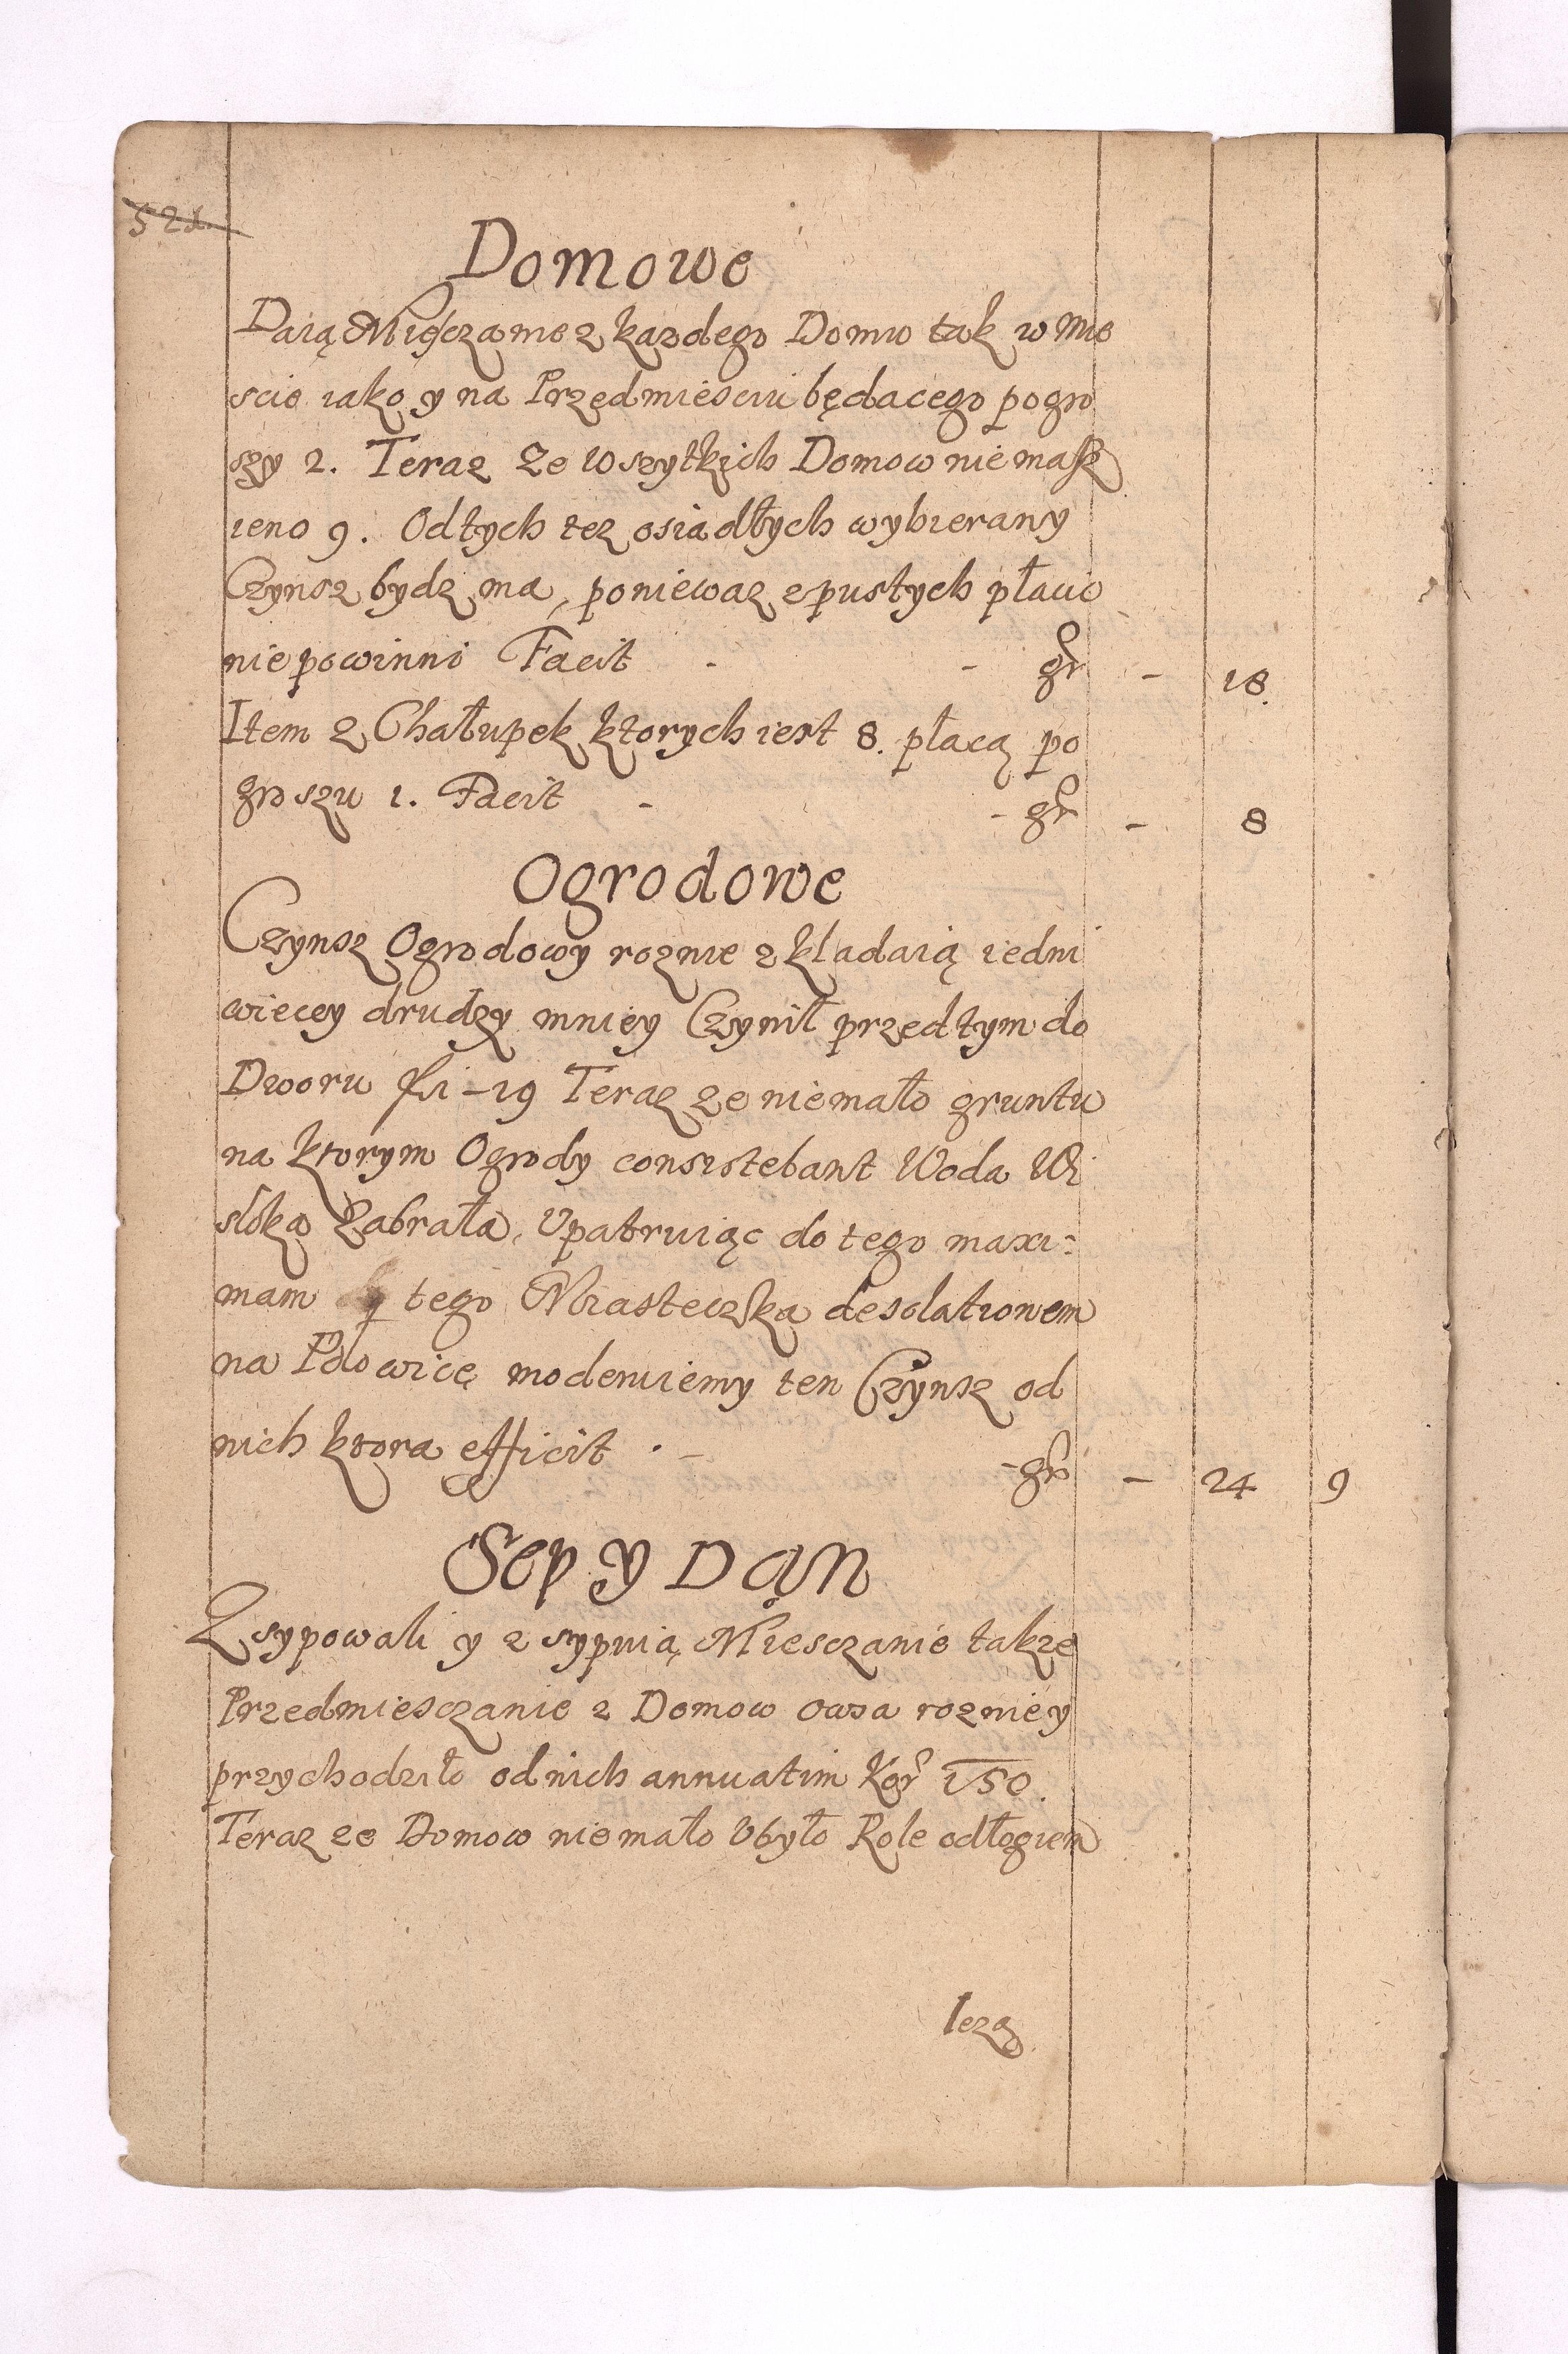 521
Domowe
Daią Miesczanie z kazdego Domu tak w Mie
scie iako y na Przedmiesciu będacego pogro
szy 2. Teraz ze wszytkich Domow niemasz
ieno 9. Odtych tez osiadłych wybierany
Czynsz bydz ma, poniewaz z pustych płacic
niepowinni Facit - - gr - 18.
Item z Chałupek ktorych iest 8. płacą po
groszu 1. Facit - - gr - 8
Ogrodowe
Czynsz Ogrodowy roznie zkladaią iedni
wiecey drudzy mniey Czynił przedtym do
Dworu fi - 19 Teraz ze niemało gruntu
na ktorym Ogrody consistebant Woda Wi
sloka Zabrała, Upatruiąc do tego maxi:
mam y tego Miasteczka desolationem
na Połowicę moderuiemy ten Czynsz od
nich ktora efficit . - - gr - 24 9
Sep y Dan
Zsypowali y zsypuią Miesczanie takze
Przedmiesczanie z Domow owsa rozniey
przychodziło od nich annuatim Kor 150.
Teraz ze Domow niemało Ubyło Role odłogiem
leza